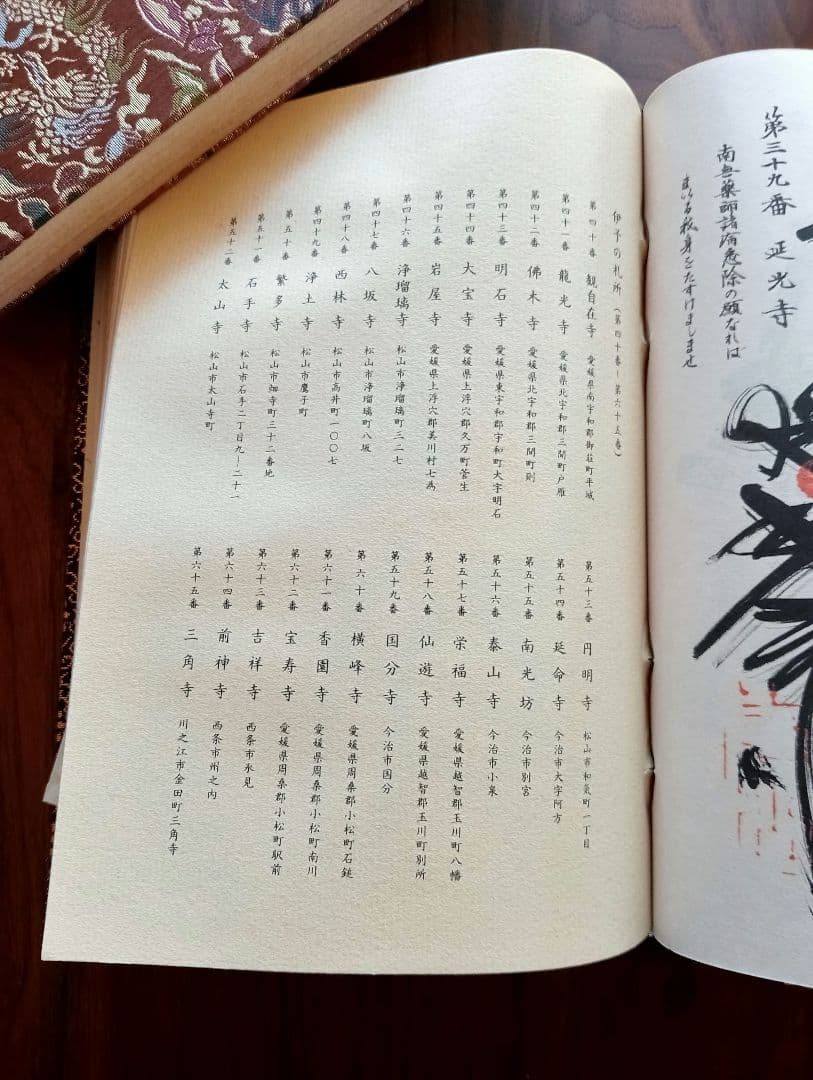 第三十九番 延光寺
南無薬師諸病悉除の願なれば
まいる我身をたすけましませ
伊予の札所（第四十番－第六十五番）
第四十番 観自在寺 愛媛県南宇和郡御荘町平城
第四十一番 龍光寺 愛媛県北宇和郡三間町戸雁
第四十二番 佛木寺 愛媛県北宇和郡三間町則
第四十三番 明石寺 愛媛県東宇和郡宇和町大字明石
第四十四番 大宝寺 愛媛県上浮穴郡久万町菅生
第四十五番 岩屋寺 愛媛県上浮穴郡美川村七鳥
第四十六番 浄瑠璃寺 松山市浄瑠璃町三二七
第四十七番 八坂寺 松山市浄瑠璃町八坂
第四十八番 西林寺 松山市高井町一〇〇七
第四十九番 浄土寺 松山市鷹子町
第五十番 繁多寺 松山市畑寺町三十二番地
第五十一番 石手寺 松山市石手二丁目九－二十一
第五十二番 太山寺 松山市太山寺町
第五十三番 円明寺 松山市和気町一丁目
第五十四番 延命寺 今治市大字阿方
第五十五番 南光坊 今治市別宮
第五十六番 泰山寺 今治市小泉
第五十七番 栄福寺 愛媛県越智郡玉川町八幡
第五十八番 仙遊寺 愛媛県越智郡玉川町別所
第五十九番 国分寺 今治市国分
第六十番 横峰寺 愛媛県周桑郡小松町石鎚
第六十一番 香園寺 愛媛県周桑郡小松町南川
第六十二番 宝寿寺 愛媛県周桑郡小松町駅前
第六十三番 吉祥寺 西条市氷見
第六十四番 前神寺 西条市州之内
第六十五番 三角寺 川之江市金田町三角寺